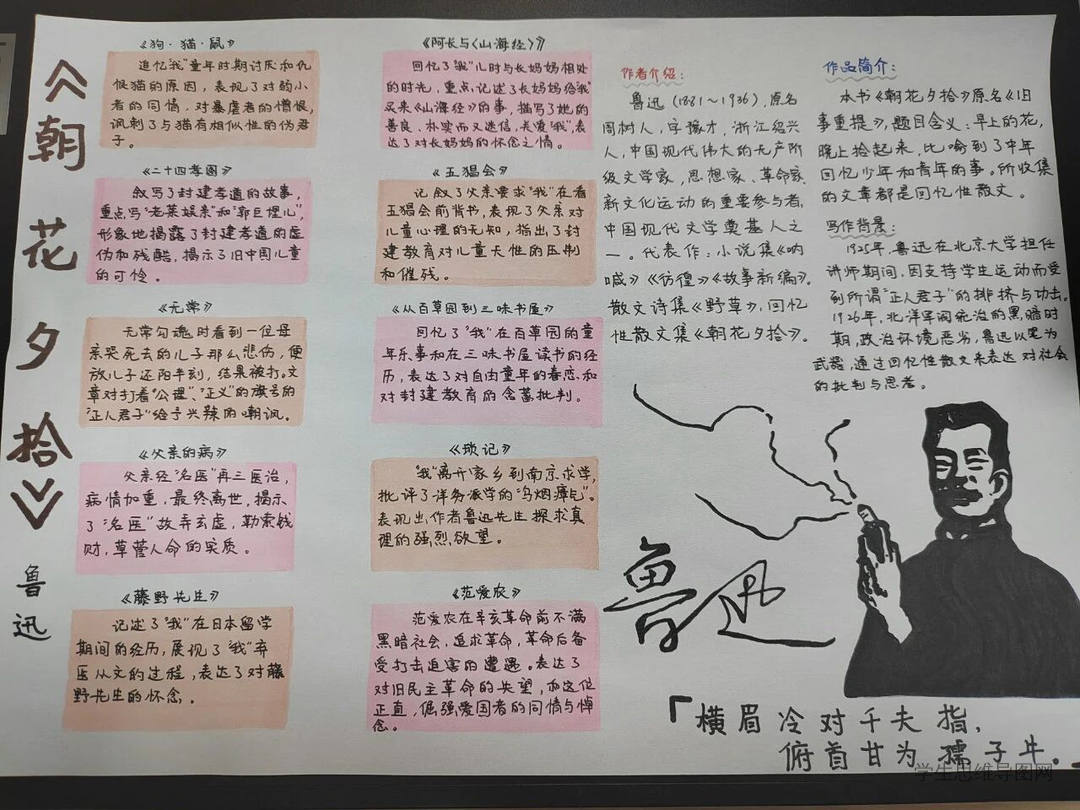 《朝花夕拾》
鲁迅
《狗·猫·鼠》
追忆"我"童年时期讨厌和仇
恨猫的原因，表现了对弱小
者的同情，对暴虐者的憎恨，
讽刺了与猫有相似性的伪君
子。
《二十四孝图》
叙写了封建孝道的故事，
重点写"老莱娱亲"和"郭巨埋儿"，
形象地揭露了封建孝道的虚
伪和残酷，揭示了旧中国儿童
的可怜。
《无常》
无常勾魂时看到一位母
亲哭死去的儿子那么悲伤，便
放儿子还阳半刻，结果被打。文
章对打着"公理"、"正义"的旗号的
"正人君子"给予辛辣的嘲讽。
《父亲的病》
父亲经"名医"再三医治，
病情加重，最终离世，揭示
了"名医"故弄玄虚，勒索钱
财，草菅人命的实质。
《藤野先生》
记述了"我"在日本留学
期间的经历，展现了"我"弃
医从文的过程，表达了对藤
野先生的怀念。
《阿长与《山海经》》
回忆了"我"儿时与长妈妈相处
的时光，重点记述了长妈妈给"我"
买来《山海经》的事，描写了她的
善良、朴实而又迷信，关爱"我"，表
达了对长妈妈的怀念之情。
《五猖会》
记叙了父亲要求"我"在看
五猖会前背书，表现了父亲对
儿童心理的无知，指出了封
建教育对儿童天性的压制
和催残。
《从百草园到三味书屋》
回忆了"我"在百草园的童
年乐事和在三味书屋读书的经
历，表达了对自由童年的眷恋和
对封建教育的含蓄批判。
《琐记》
"我"离开家乡到南京求学，
批评了洋务派学的"乌烟瘴气"。
表现出作者鲁迅先生探求真
理的强烈欲望。
《范爱农》
范爱农在辛亥革命前不满
黑暗社会，追求革命，革命后备
受打击迫害的遭遇。表达了
对旧民主革命的失望，和这位
正直，倔强爱国者的同情与悼
念。
作者介绍：
鲁迅（1881～1936），原名
周树人，字豫才，浙江绍兴
人，中国现代伟大的无产阶
级文学家，思想家、革命家
新文化运动的重要参与者，
中国现代文学奠基人之
一。代表作：小说集《呐
喊》《彷徨》《故事新编》。
散文诗集《野草》，回忆
性散文集《朝花夕拾》。
作品简介：
本书《朝花夕拾》原名《旧
事重提》，题目含义：早上的花，
晚上拾起来，比喻到了中年
回忆少年和青年的事。所收集
的文章都是回忆性散文。
写作背景：
1925年，鲁迅在北京大学担任
讲师期间，因支持学生运动而受
到所谓"正人君子"的排挤与攻击。
1926年，北洋军阀统治的黑暗时
期，政治环境恶劣，鲁迅以笔为
武器，通过回忆性散文来表达对社会
的批判与思考。
鲁迅
「横眉冷对千夫指，
俯首甘为孺子牛。
学生思维导图网